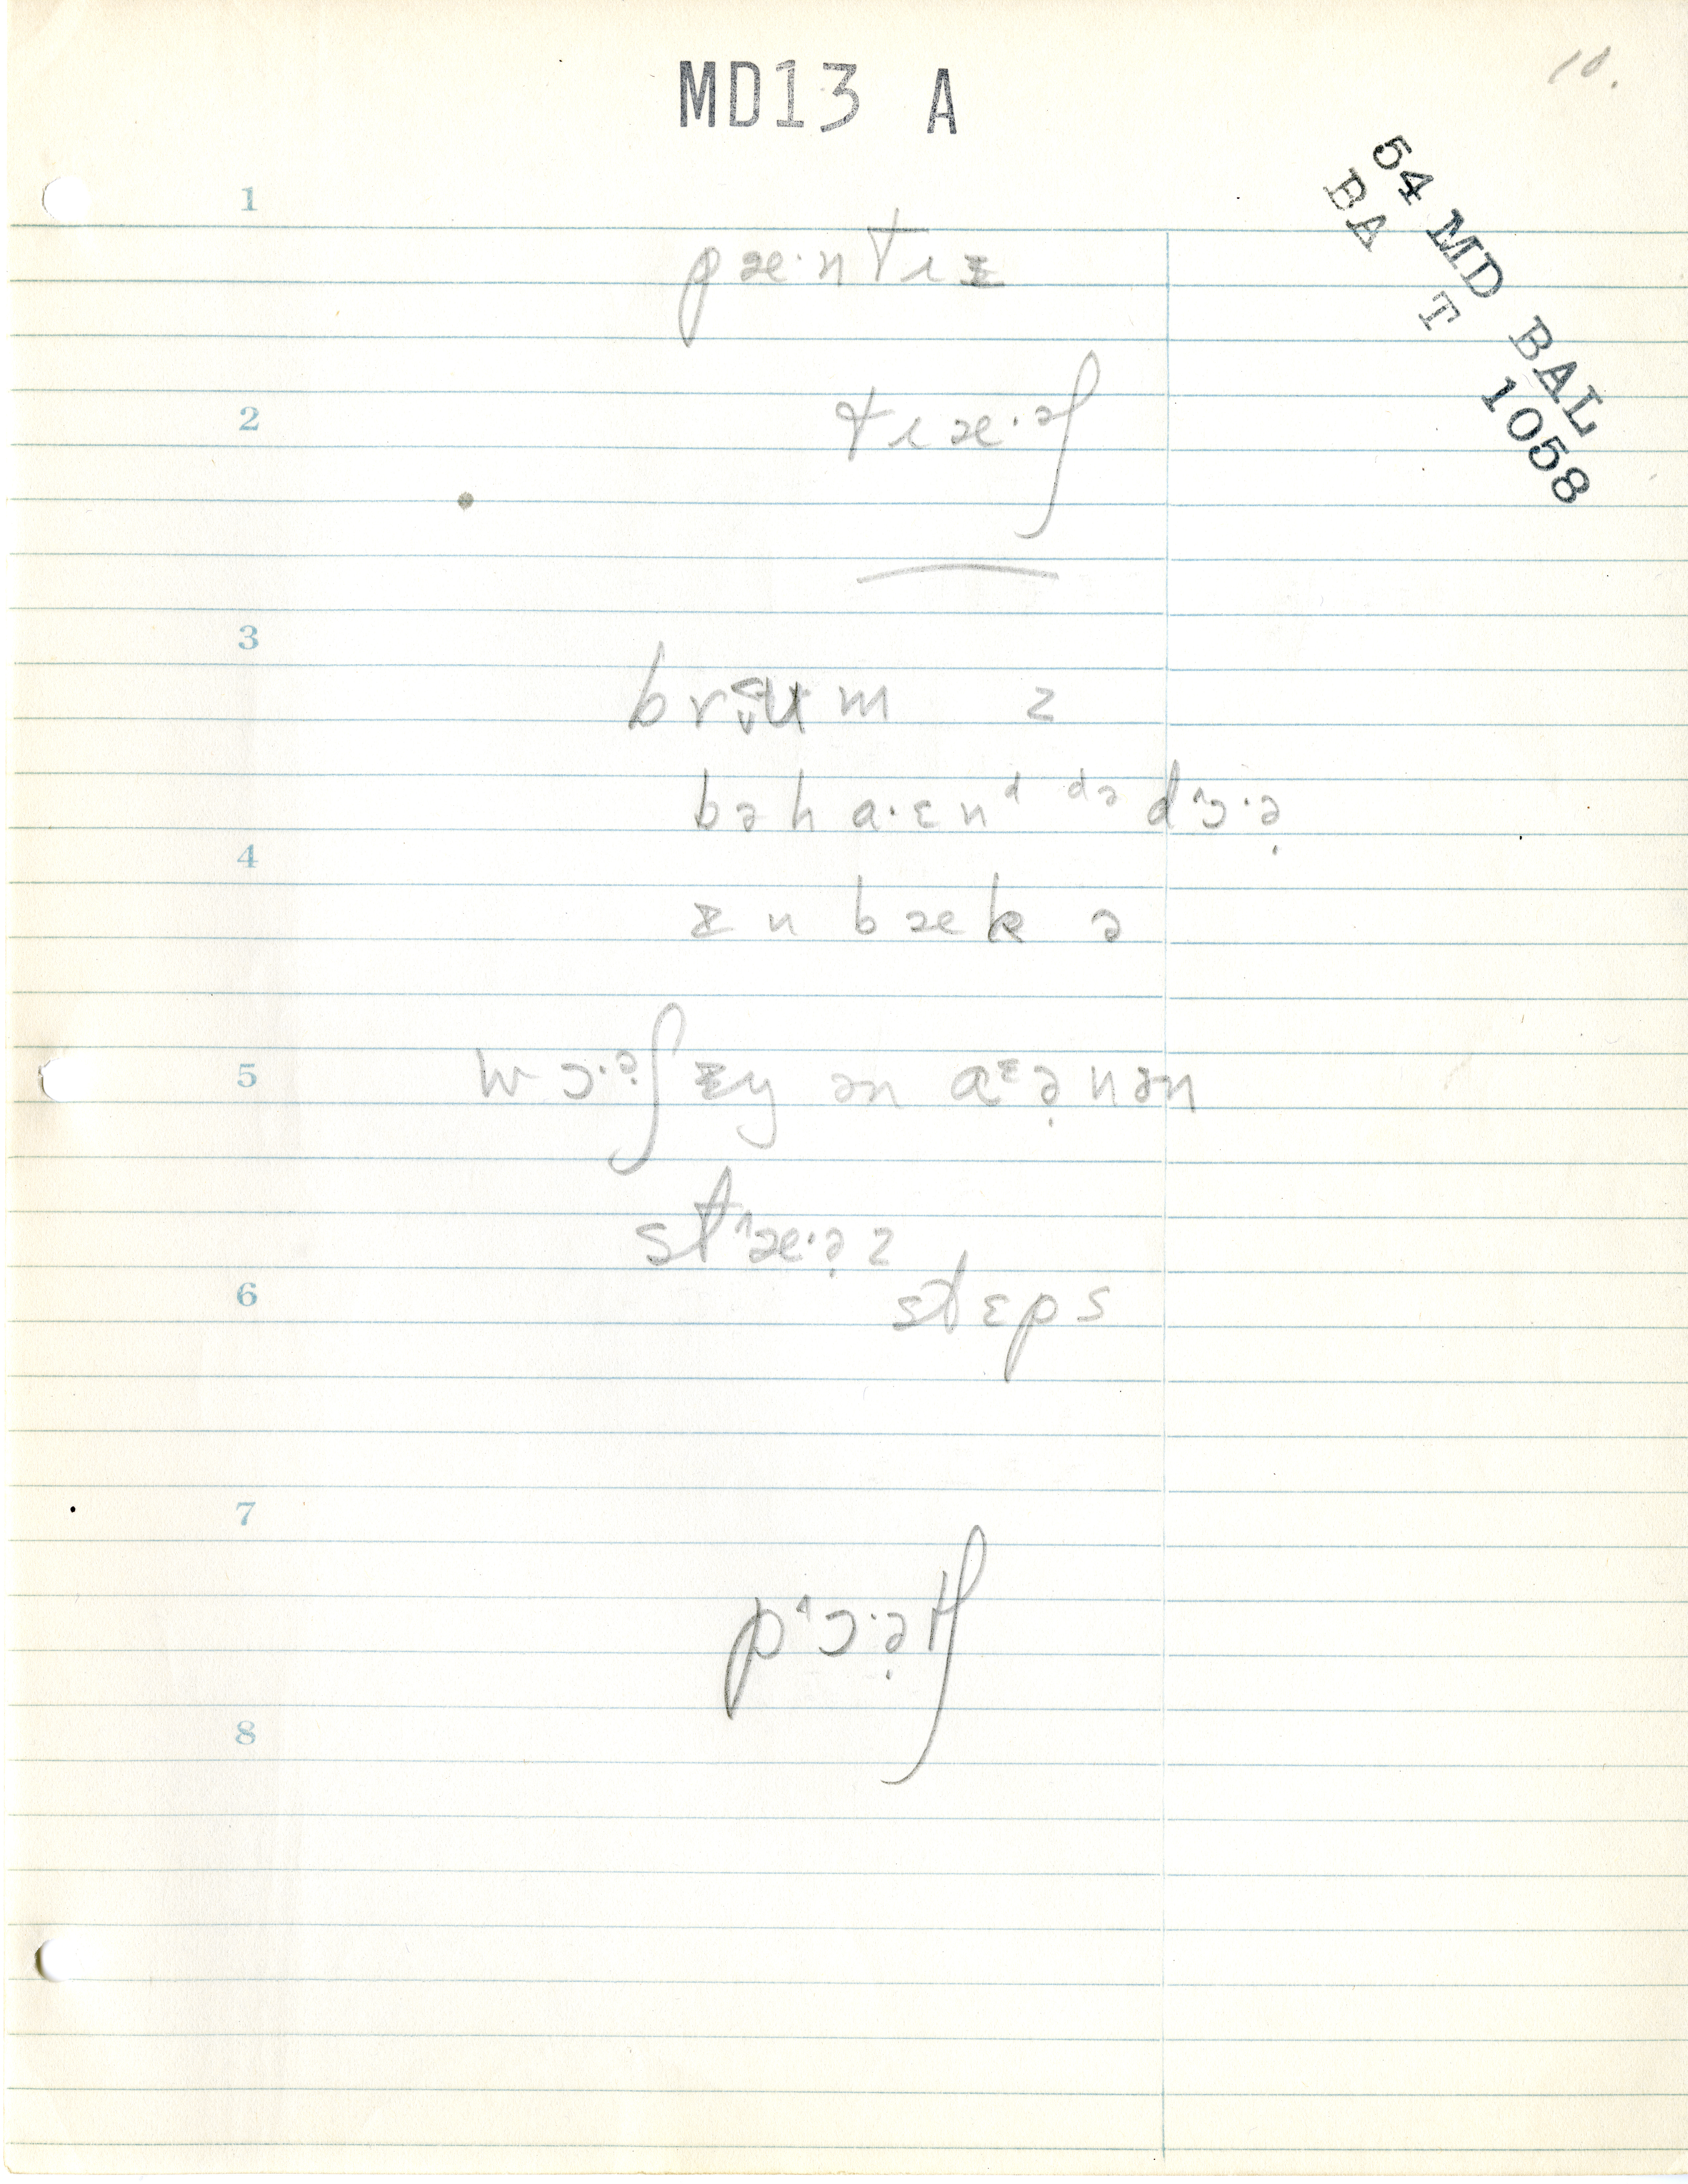 MD13 A
10.
54 MD BAL
BA T 1058
1
pæ·ntrɪ
2
træ·ʃ
3
brʉm z
bəhɑ·ɛnᵈ ᵈə dˆɔ·ə̣
4
ɪn bæk ə
5
wɔ·ə̣ʃɪŋ ən aᶦə̣nən
stˆæ·ə̣z
6
stɛps
7
pˆɔ·ə̣tʃ
8